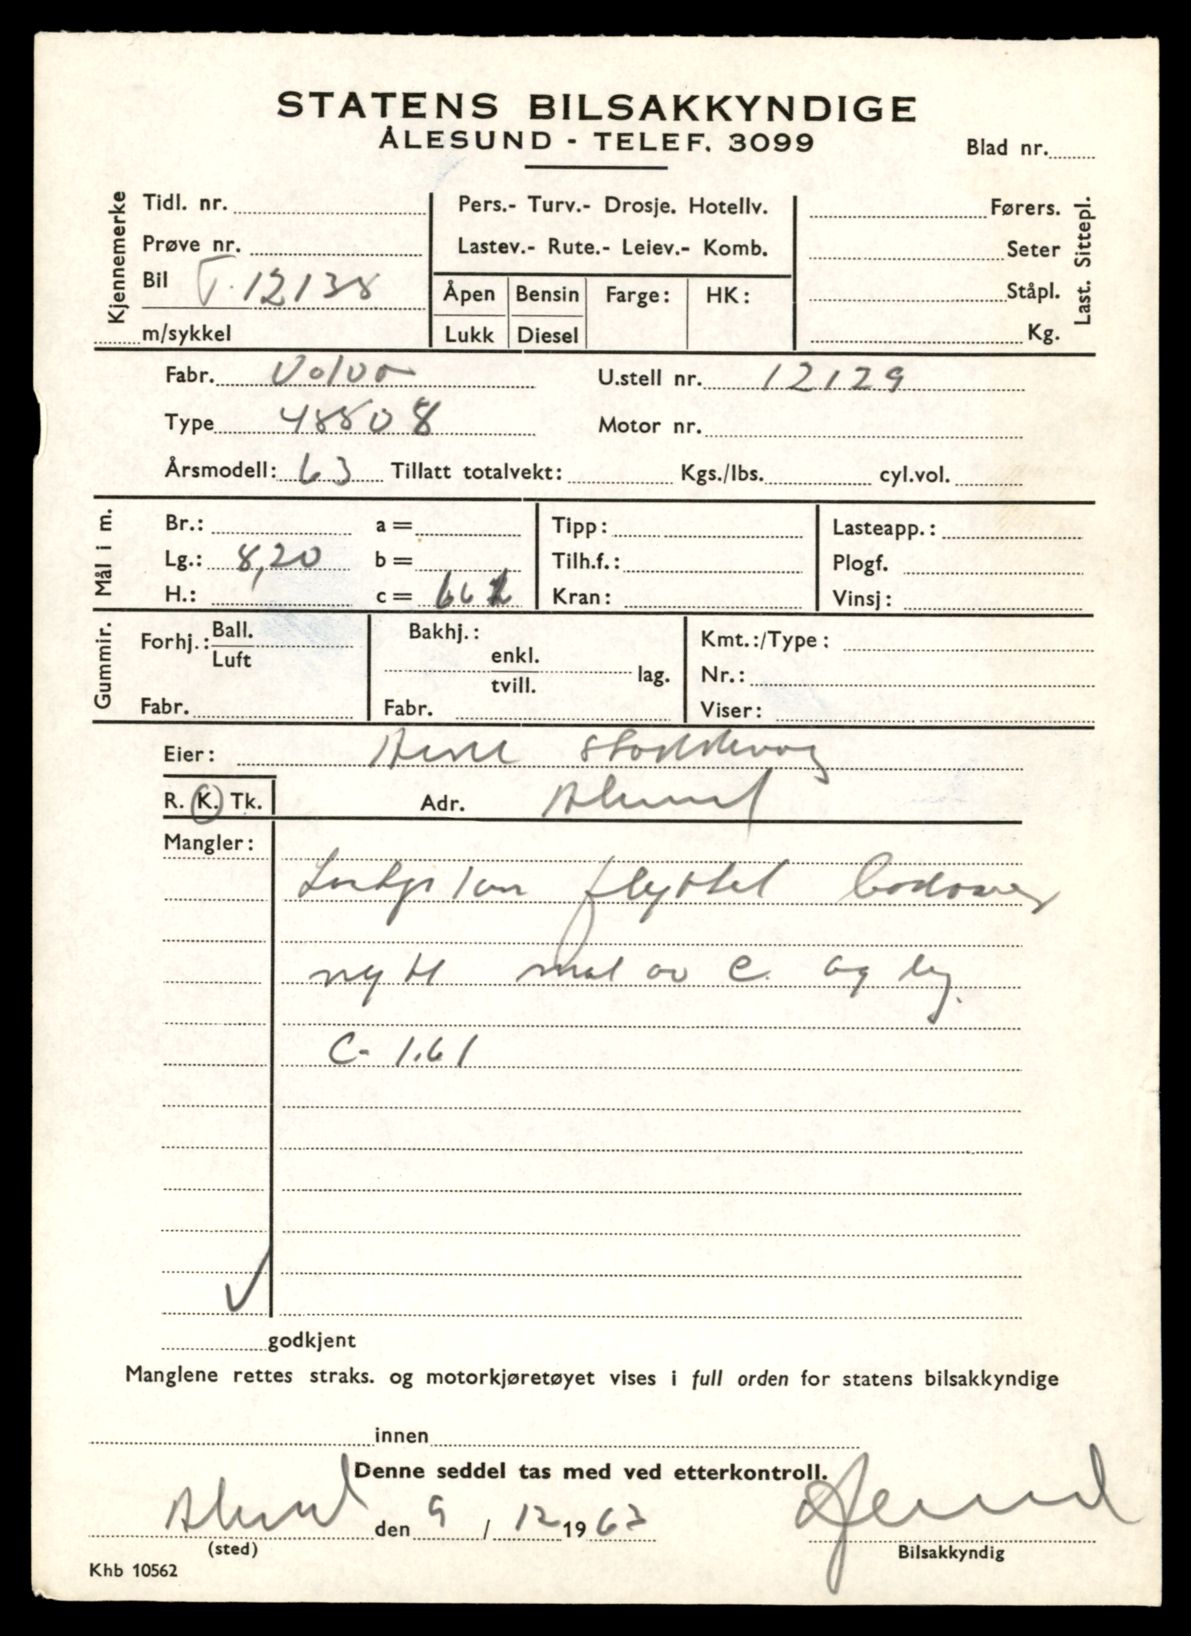 STATENS BILSAKKYNDIGE
ÅLESUND - TELEF. 3099
Blad nr.
Kjennemerke
Tidl. nr.
Prøve nr.
Bil T-12138
m/sykkel
Pers.- Turv.- Drosje. Hotellv.
Lastev.- Rute.- Leiev.- Komb.
Åpen Bensin Farge: HK:
Lukk Diesel
Førers.
Seter
Ståpl.
Kg.
Last. Sittepl.
Fabr. Volvo U.stell nr. 12129
Type 48808 Motor nr.
Årsmodell: 63 Tillatt totalvekt: Kgs./lbs. cyl.vol.
Mål i m.
Br.: a = Tipp: Lasteapp.:
Lg.: 8,20 b = Tilh.f.: Plogf.
H.: c = Kran: Vinsj:
Gummir.
Forhj.: Ball. Luft
Fabr.
Bakhj.: enkl. tvill. lag.
Fabr.
Kmt.:/Type:
Nr.:
Viser:
Eier: Arne
R. K. Tk. Adr. Ålesund
Mangler:
flyttet
nytt mål av c. og lg.
C- 1.61
godkjent
Manglene rettes straks. og motorkjøretøyet vises i full orden for statens bilsakkyndige
innen
Denne seddel tas med ved etterkontroll.
Ålesund den 9 / 12 19 63
(sted)
Bilsakkyndig
Khb 10562